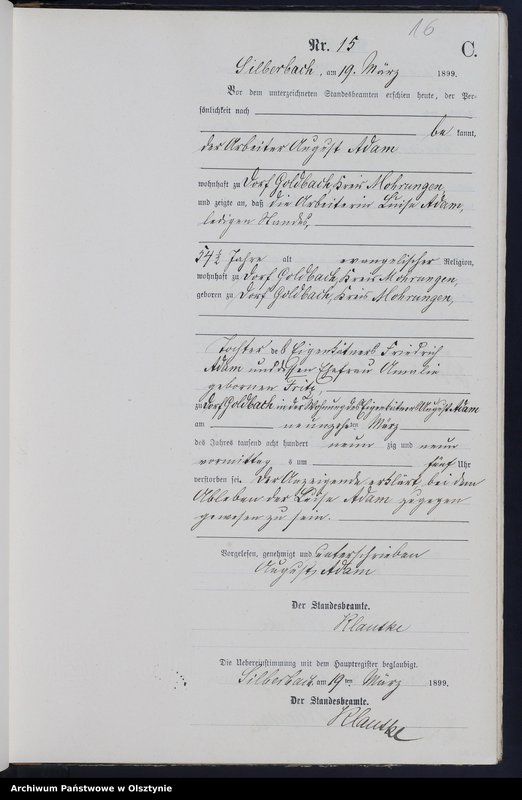 16
Nr. 15
C.
Silberbach, am 19. März 1899.
Vor dem unterzeichneten Standesbeamten erschien heute, der Per-
sönlichkeit nach
be kannt,
der Arbeiter August Adam
wohnhaft zu Dorf Goldbach, Kreis Mohrungen,
und zeigte an, daß die Arbeiterin Luise Adam,
ledigen Standes,
54 1/2 Jahre alt evangelischer Religion,
wohnhaft zu Dorf Goldbach, Kreis Mohrungen,
geboren zu Dorf Goldbach, Kreis Mohrungen,
Tochter des Eigenkätners Friedrich
Adam und dessen Ehefrau Amalie
gebornen Fritz
zu Dorf Goldbach in der Wohnung des Eigenkätners August Adam
am neunzehnten März
des Jahres tausend acht hundert neun zig und neun
vormittag s um fünf Uhr
verstorben sei. Der Anzeigende erklärt, bei dem
Ableben der Luise Adam zugegen
gewesen zu sein.
Vorgelesen, genehmigt und unterschrieben
August Adam
Der Standesbeamte.
Klautke
Die Uebereinstimmung mit dem Hauptregister beglaubigt.
Silberbach am 19ten März 1899.
Der Standesbeamte.
Klautke
Archiwum Państwowe w Olsztynie